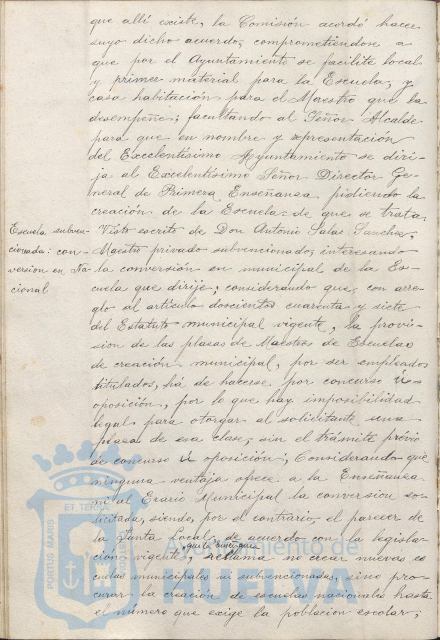 que allí existe, la Comisión acordó hacer
suyo dicho acuerdo, comprometiendose a
que por el Ayuntamiento se facilite local
y primer material para la Escuela, y
casa habitación para el Maestro que la
desempeñe; facultando al Señor Alcalde
para que en nombre y representación
del Excelentísimo Ayuntamiento se diri-
ja al Excelentísimo Señor Director Ge-
neral de Primera Enseñanza pidiendo la
creación de la Escuela de que se trata.
Escuela subven-
cionada: con-
version en Na-
cional
Visto escrito de Don Antonio Salas Sanchez,
Maestro privado subvencionado, interesando
la conversión en municipal de la Es-
cuela que dirije; considerando que, con arre-
glo al artículo doscientos cuarenta y siete
del Estatuto municipal vigente, la provi-
sion de las plazas de Maestros de Escuelas
de creación municipal, por ser empleados
titulados, há de hacerse por concurso ú
oposición, por lo que hay imposibilidad
legal para otorgar al solicitante una
plaza de esa clase, sin el trámite previo
de concurso ú oposición; Considerando que
ninguna ventaja ofrece a la Enseñanza
ni al Erario Municipal la conversion so-
licitada, siendo, por el contrario, el parecer de
la Junta Local, de acuerdo con la legisla-
ción vigente, no crear nuevas es-
cuelas municipales ni subvencionadas, sino pro-
curar la creación de escuelas nacionales hasta
el número que exige la poblacion escolar;
Ayuntamiento de
HUELVA
PORTUS MARIS
ET TERRAE
CUSTODIA